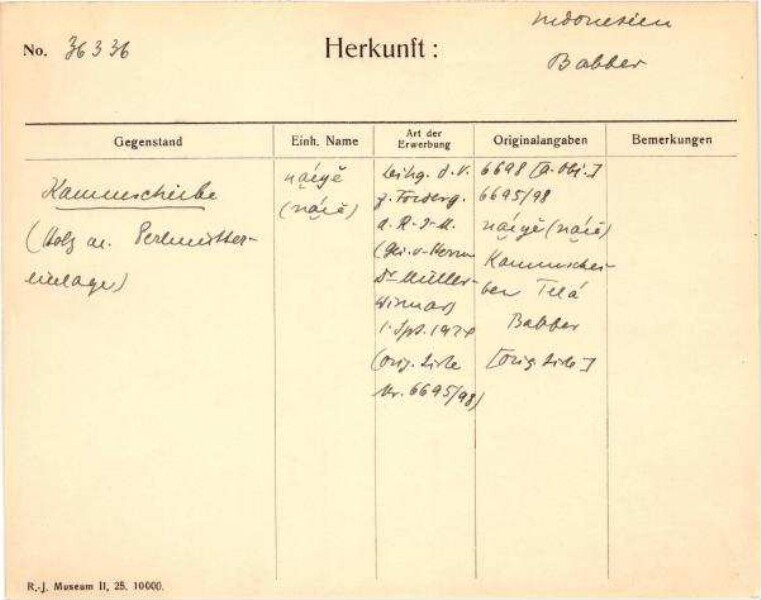 No. 36336
Herkunft:
Indonesien
Babber
Gegenstand
Einh. Name
Art der
Erwerbung
Originalangaben
Bemerkungen
Kammscheibe
(Holz m. Perlmutter-
einlage)
náiyĕ
(náiĕ)
Leihg. d. V.
z. Förderg.
d. R-J-M.
(Ges. v. Herrn
Dr Müller-
Wismar)
1. Spt. 1924
(orig. Liste
Nr. 6695/98)
6698 [a. Obj.]
6695/98
náiyĕ (náiĕ)
Kammschei-
ben Telá
Babber
[Orig. Liste]
R.-J. Museum II, 25. 10000.